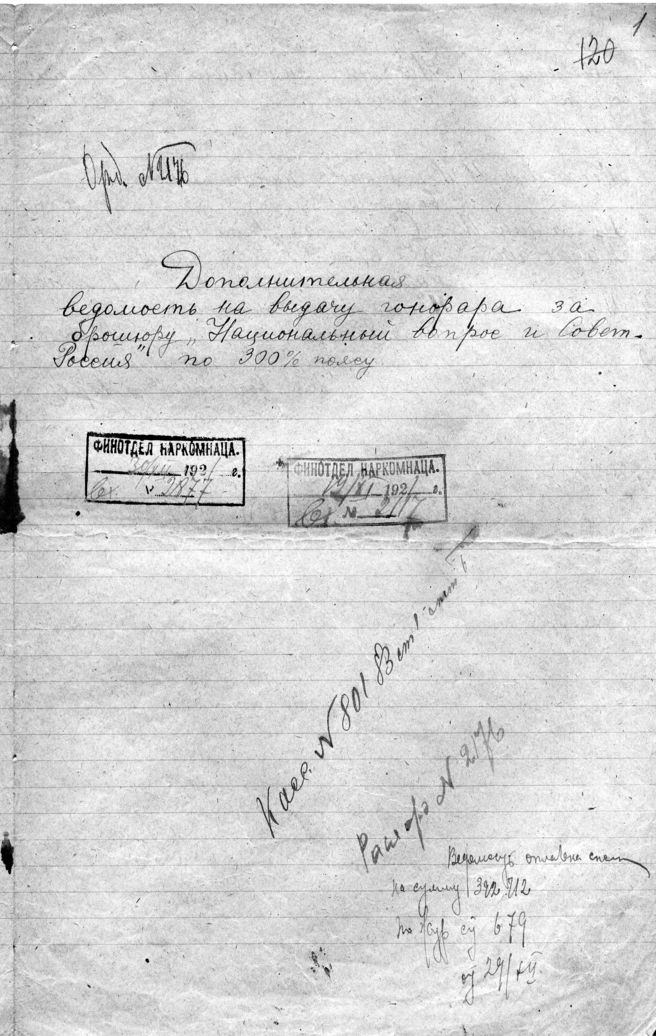 1
120
Орд. №
Дополнительная
ведомость на выдачу гонорара за
брошюру „Национальный вопрос и Совет.
Россия" по 300% поясу
ФИНОТДЕЛ НАРКОМНАЦА.
192 г.
Вх № 2877
ФИНОТДЕЛ НАРКОМНАЦА.
192 г.
Вх № 2117
Касс. № 801 83 ст
№ 2176
Ведомость
на сумму 392 712
по 679
29/XII